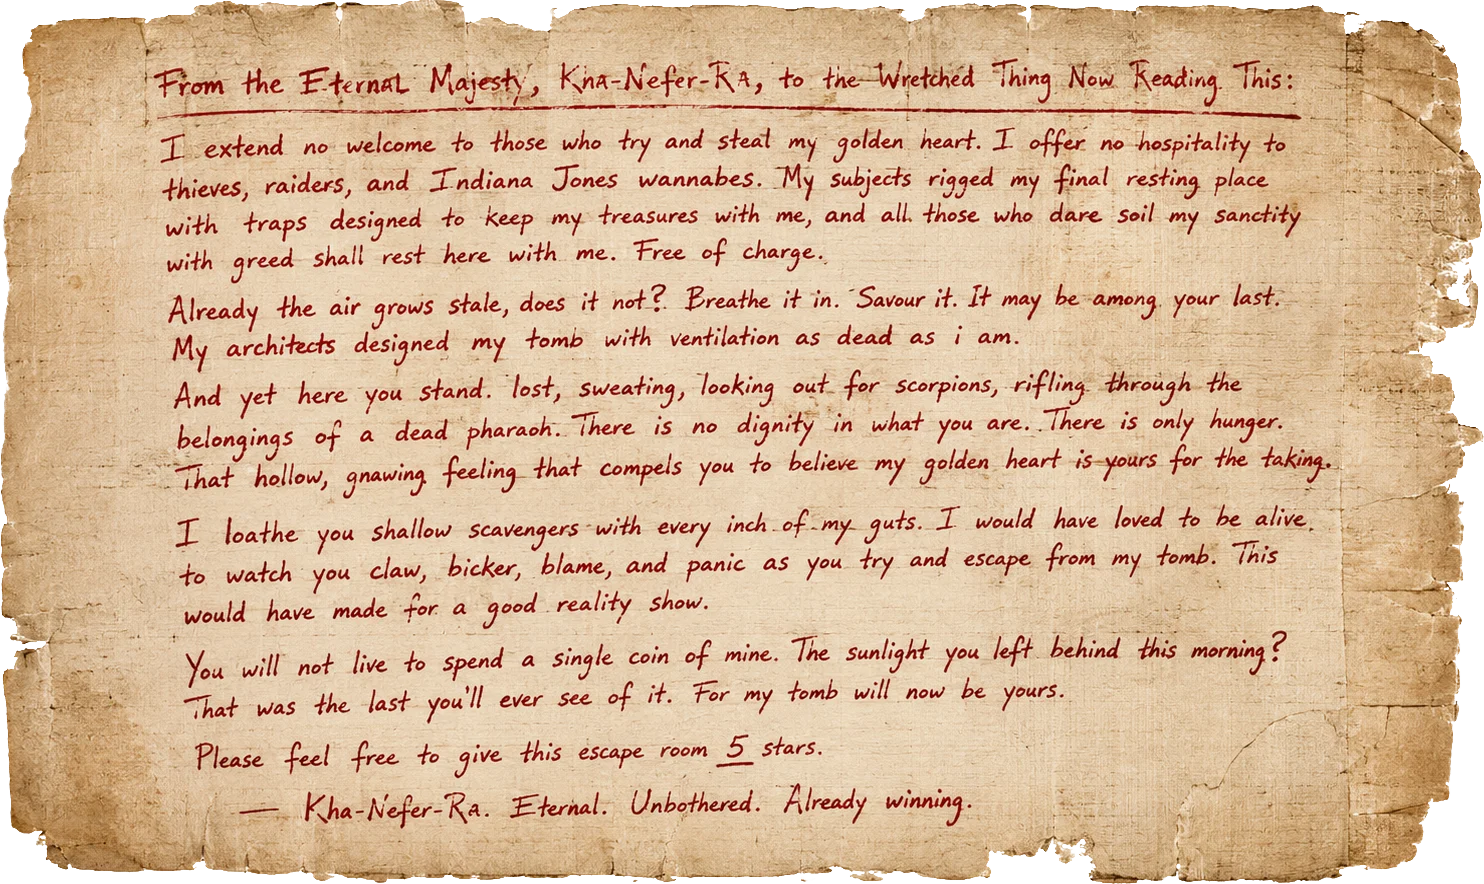 From the Eternal Majesty, Kha-Nefer-Ra, to the Wretched Thing Now Reading This:
I extend no welcome to those who try and steal my golden heart. I offer no hospitality to
thieves, raiders, and Indiana Jones wannabes. My subjects rigged my final resting place
with traps designed to keep my treasures with me, and all those who dare soil my sanctity
with greed shall rest here with me. Free of charge.
Already the air grows stale, does it not? Breathe it in. Savour it. It may be among your last.
My architects designed my tomb with ventilation as dead as i am.
And yet here you stand. lost, sweating, looking out for scorpions, rifling through the
belongings of a dead pharaoh. There is no dignity in what you are. There is only hunger.
That hollow, gnawing feeling that compels you to believe my golden heart is yours for the taking.
I loathe you shallow scavengers with every inch of my guts. I would have loved to be alive,
to watch you claw, bicker, blame, and panic as you try and escape from my tomb. This
would have made for a good reality show.
You will not live to spend a single coin of mine. The sunlight you left behind this morning?
That was the last you'll ever see of it. For my tomb will now be yours.
Please feel free to give this escape room 5 stars.
— Kha-Nefer-Ra. Eternal. Unbothered. Already winning.